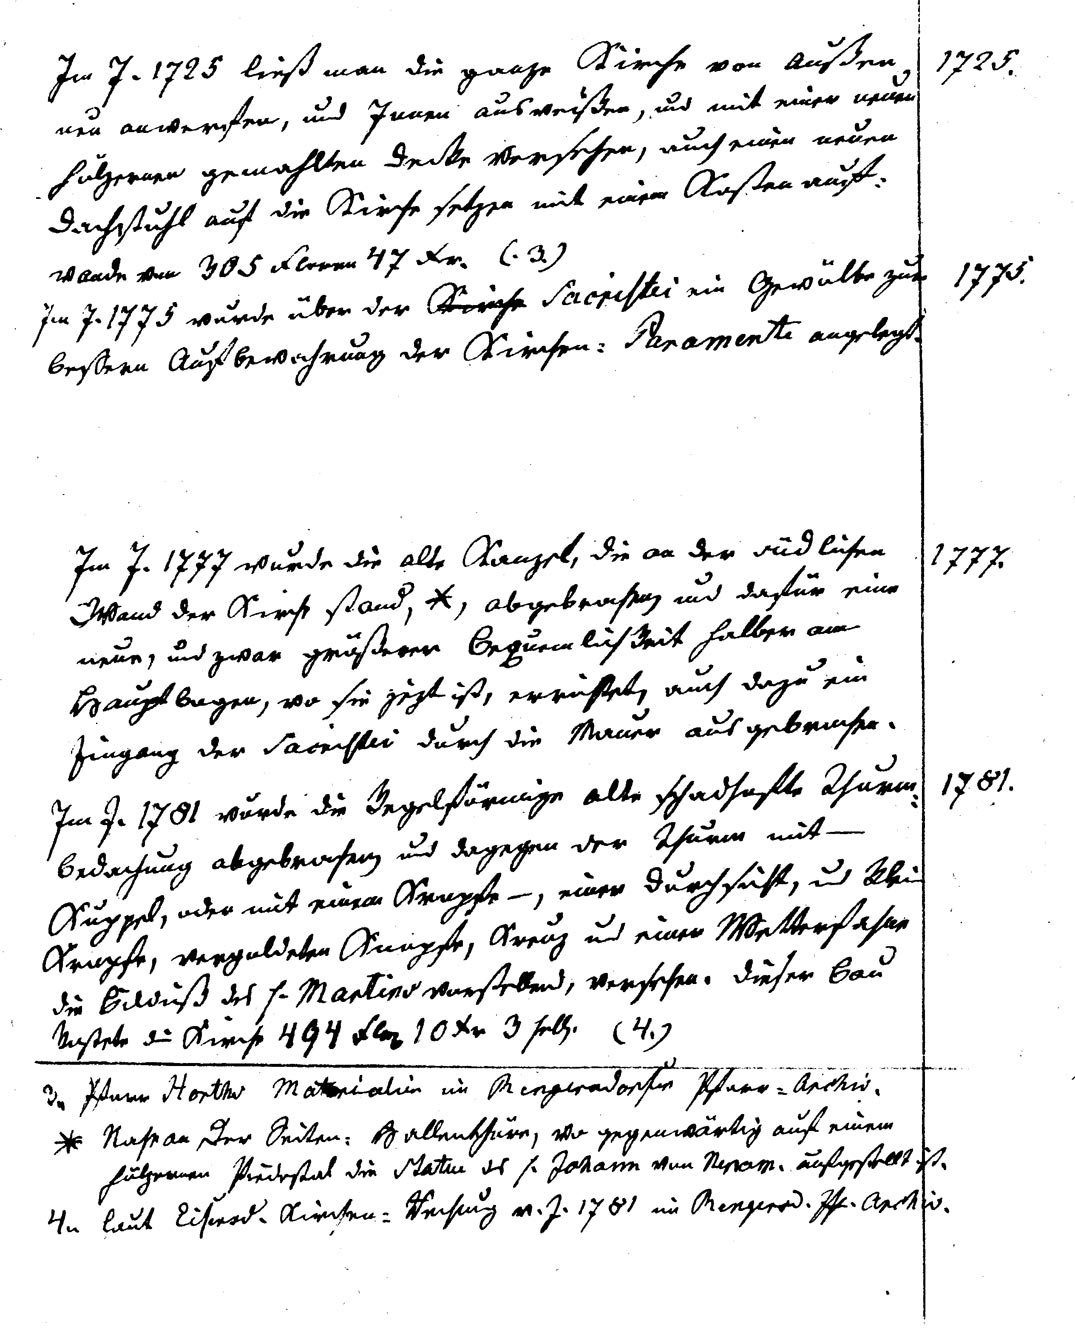 Im J. 1725 ließ man die ganze Kirche von Außen 1725.
neu anwerfen, und Innen ausweißen, und mit einer neuen
hölzernen gemahlten Decke versehen, auch einen neuen
Dachstuhl auf die Kirche setzen mit einem Kosten auf-
wande von 305 Floren 47 Xr. (. 3.)
Im J. 1775 wurde über der Kirche Sacristei ein Gewölbe zur 1775.
bessern Aufbewahrung der Kirchen= Paramente angelegt.
Im J. 1777 wurde die alte Kanzel, die an der südlichen 1777.
Wand der Kirche stand, *, abgebrochen, und dafür eine
neue, und zwar größerer Bequemlichkeit halber am
Hauptbogen, wo sie jezt ist, errichtet, auch dazu ein
Eingang der Sacristei durch die Mauer ausgebrochen.
Im J. 1781 wurde die kegelförmige alte schadhafte Thurm= 1781.
bedachung abgebrochen, und dagegen der Thurm mit —
Kuppel, oder mit einem Knopfe —, einer Durchsicht, und klein
Knopfe, vergoldeten Knopfe, Kreuz und einer Wetterfahne
die Bildniß des h. Martins vorstellend, versehen. Dieser Bau
kostete die Kirche 494 Flor 10 Xr 3 hell. (4.)
3. Pfarr Materialien im Rengersdorfer Pfarr= Archiv.
* Nahe an der Seiten= Hallenthüre, wo gegenwärtig auf einem
hölzernen Piedestal die Statue des h. Johann von Nepom. aufgestellt ist.
4. laut Eisersd. Kirchen= Rechnung v. J. 1781 im Rengersd. Pf. Archiv.